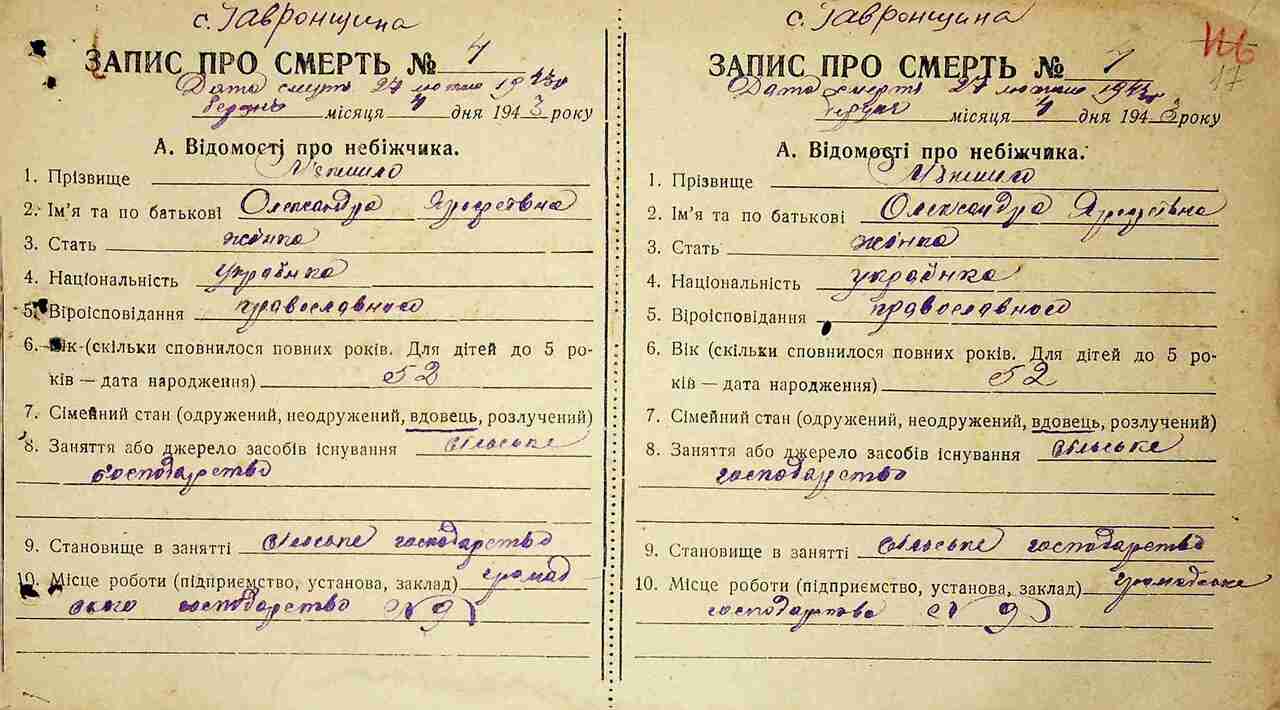 с. Гавронщина
ЗАПИС ПРО СМЕРТЬ № 7
Дата смерть 27 лютого 1943 р
місяця 4 дня 1943 року
А. Відомості про небіжчика.
1. Прізвище
2. Ім'я та по батькові Олександра
3. Стать жінка
4. Національність українка
5. Віроісповідання православного
6. Вік (скільки сповнилося повних років. Для дітей до 5 ро-
ків — дата народження) 52
7. Сімейний стан (одружений, неодружений, вдовець, розлучений)
8. Заняття або джерело засобів існування сільське
господарство
9. Становище в занятті сільське господарство
10. Місце роботи (підприємство, установа, заклад) громад
ське господарство № 9
с. Гавронщина
ЗАПИС ПРО СМЕРТЬ № 7
17
Дата смерть 27 лютого 1943 р
місяця 4 дня 1943 року
А. Відомості про небіжчика.
1. Прізвище
2. Ім'я та по батькові Олександра
3. Стать жінка
4. Національність українка
5. Віроісповідання православного
6. Вік (скільки сповнилося повних років. Для дітей до 5 ро-
ків — дата народження) 52
7. Сімейний стан (одружений, неодружений, вдовець, розлучений)
8. Заняття або джерело засобів існування сільське
господарство
9. Становище в занятті сільське господарство
10. Місце роботи (підприємство, установа, заклад) громадське
господарство № 9